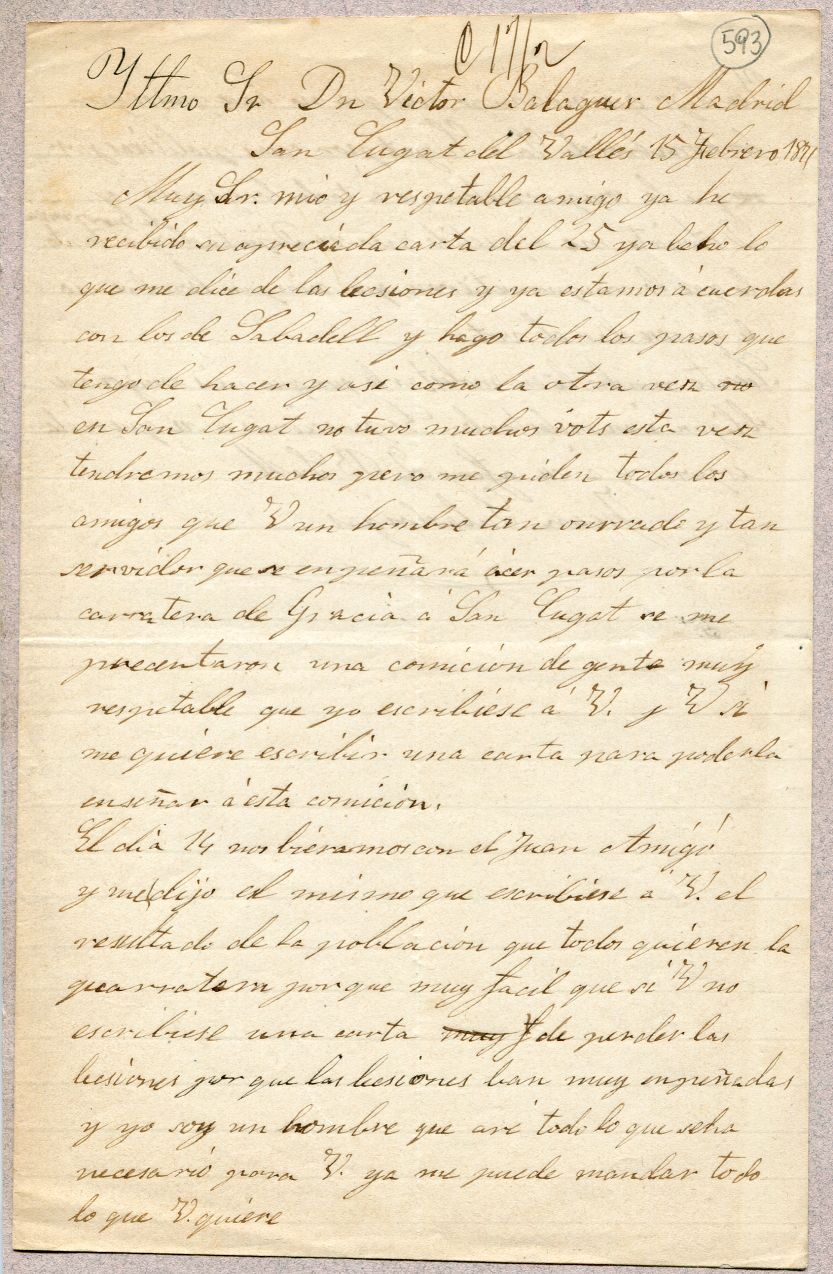 593
Ytlmo Sr Dn Victor Balaguer Madrid
San Cugat del Vallés 15 Febrero 1871
Muy Sr. mio y respetable amigo ya he
recibido su apreciada carta del 25 ya hecho lo
que me dice de las lecsiones y ya estamos á cuerdas
con los de Sabadell y hago todos los pasos que
tengo de hacer y asi como la otra vesz
en San Cugat no tuvo muchos vots esta vesz
tendremos muchos pero me piden todos los
amigos que V un hombre tan ourrado y tan
servidor que se enpeñará ácer pasos por la
carratera de Gracia á San Cugat se me
precentaron una comición de gente muy
respetable que yo escribiese á V. y V si
me quiere escribir una carta para poderla
enseñar á esta comición.
El dia 14 nos biéramos con el Juan Amigó
y me dijo el mismo que escribiese á V. el
resultado de la población que todos quieren la
quarratera porque muy facil que si V no
escribiese una carta muy f de perder las
lecsiones por que las lecsiones ban muy enpeñadas
y yo soy un hombre que aré todo lo que seha
necesarió para V. ya me puede mandar todo
lo que V. quiere